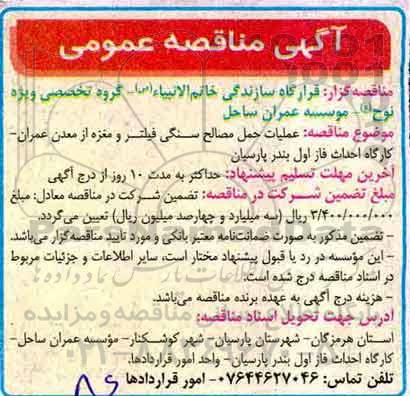 آگهی مناقصه عمومی
مناقصه‌گزار: قرارگاه سازندگی خاتم‌الانبیاء(ص)– گروه تخصصی ویژه
نوح(ع)– موسسه عمران ساحل
موضوع مناقصه: عملیات حمل مصالح سنگی فیلتر و مغزه از معدن عمران–
کارگاه احداث فاز اول بندر پارسیان
آخرین مهلت تسلیم پیشنهاد: حداکثر به مدت ۱۰ روز از درج آگهی
مبلغ تضمین شرکت در مناقصه: تضمین شرکت در مناقصه معادل: مبلغ
۳/۴۰۰/۰۰۰/۰۰۰ ریال (سه میلیارد و چهارصد میلیون ریال) تعیین می‌گردد.
– تضمین مذکور به صورت ضمانت‌نامه معتبر بانکی و مورد تایید مناقصه‌گزار می‌باشد.
– این مؤسسه در رد یا قبول پیشنهاد مختار است، سایر اطلاعات و جزئیات مربوط
در اسناد مناقصه درج شده است.
– هزینه درج آگهی به عهده برنده مناقصه می‌باشد.
آدرس جهت تحویل اسناد مناقصه:
استان هرمزگان– شهرستان پارسیان– شهر کوشکنار– مؤسسه عمران ساحل–
کارگاه احداث فاز اول بندر پارسیان– واحد امور قراردادها.
تلفن تماس: ۰۷۶۴۴۶۲۷۰۴۶– امور قراردادها